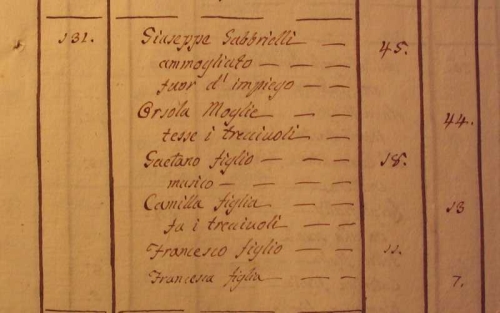 131. Giuseppe Gabbrielli — 45.
ammogliato — —
fuor d'impiego — —
Orsola Moglie — — 44.
tesse i trecciuoli — —
Gaetano figlio — — — — 18.
musico — — — —
Camilla figlia — — — 13
fa i trecciuoli — —
Francesco figlio — — 11.
Francesca figlia — — — 7.